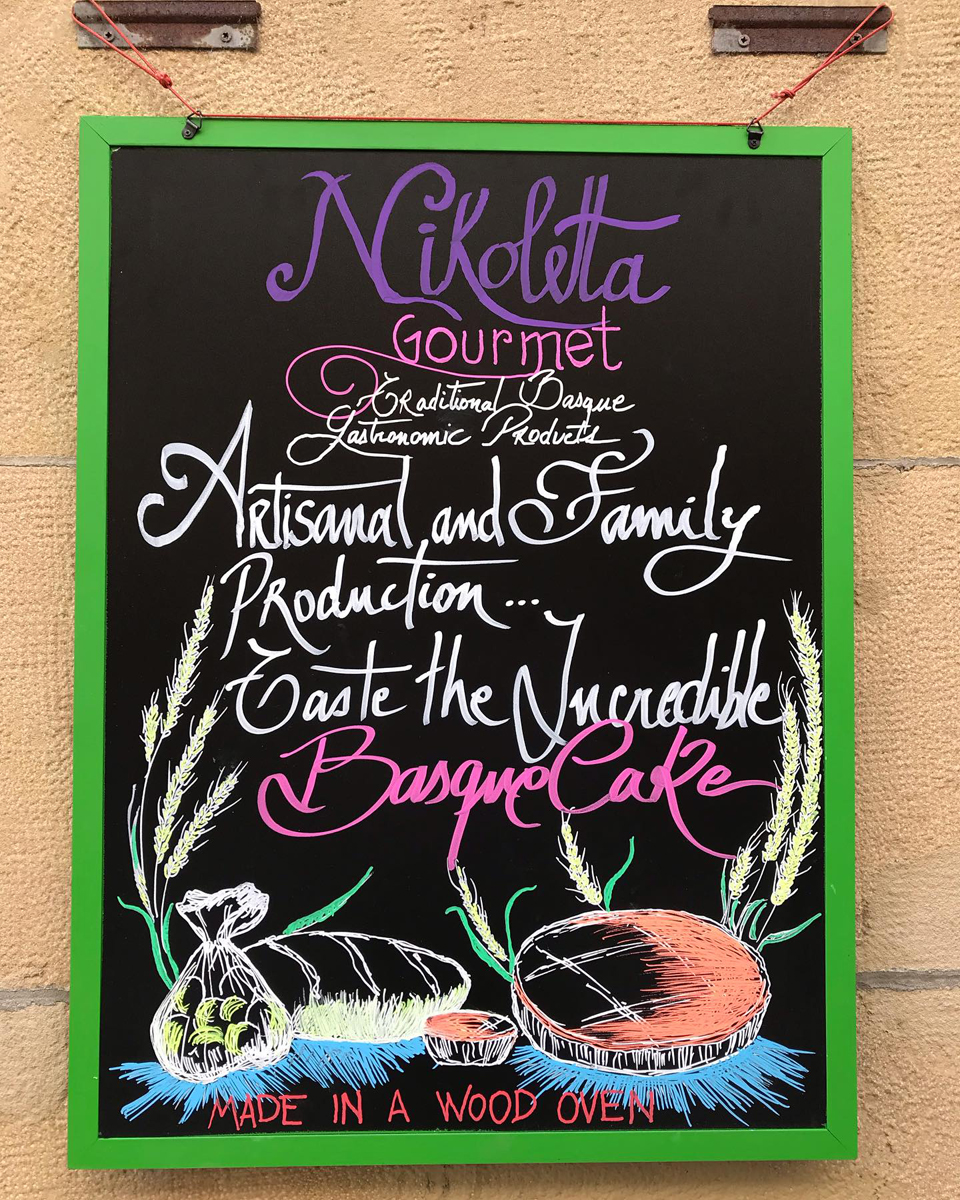 Nikoletta
Gourmet
Traditional Basque
Gastronomic Products
Artisanal and Family
Production...
Taste the Incredible
Basque Cake
MADE IN A WOOD OVEN